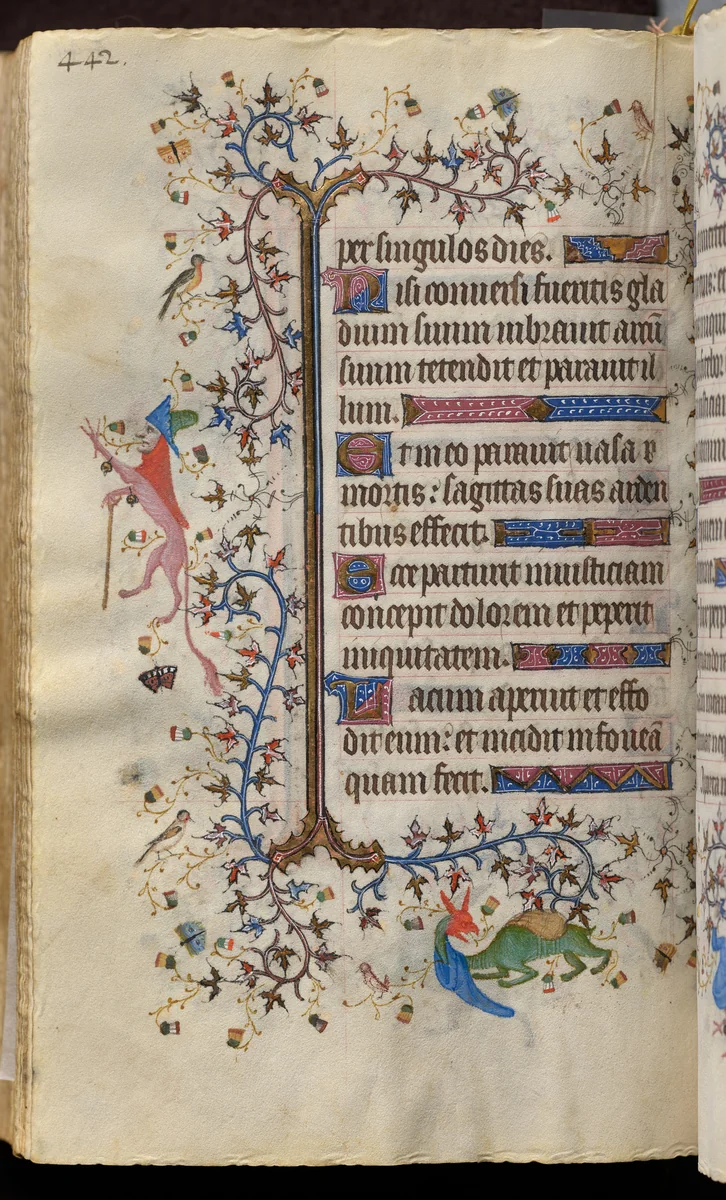 442.
per singulos dies.
Nisi conuersi fueritis gla
dium suum uibrauit arcū
suum tetendit et parauit il
lum.
Et in eo parauit uasa
mortis: sagittas suas arden
tibus effecit.
Ecce parturit iniusticiam
concepit dolorem et peperit
iniquitatem.
Lacum aperuit et effo
dit eum: et incidit in foueā
quam fecit.